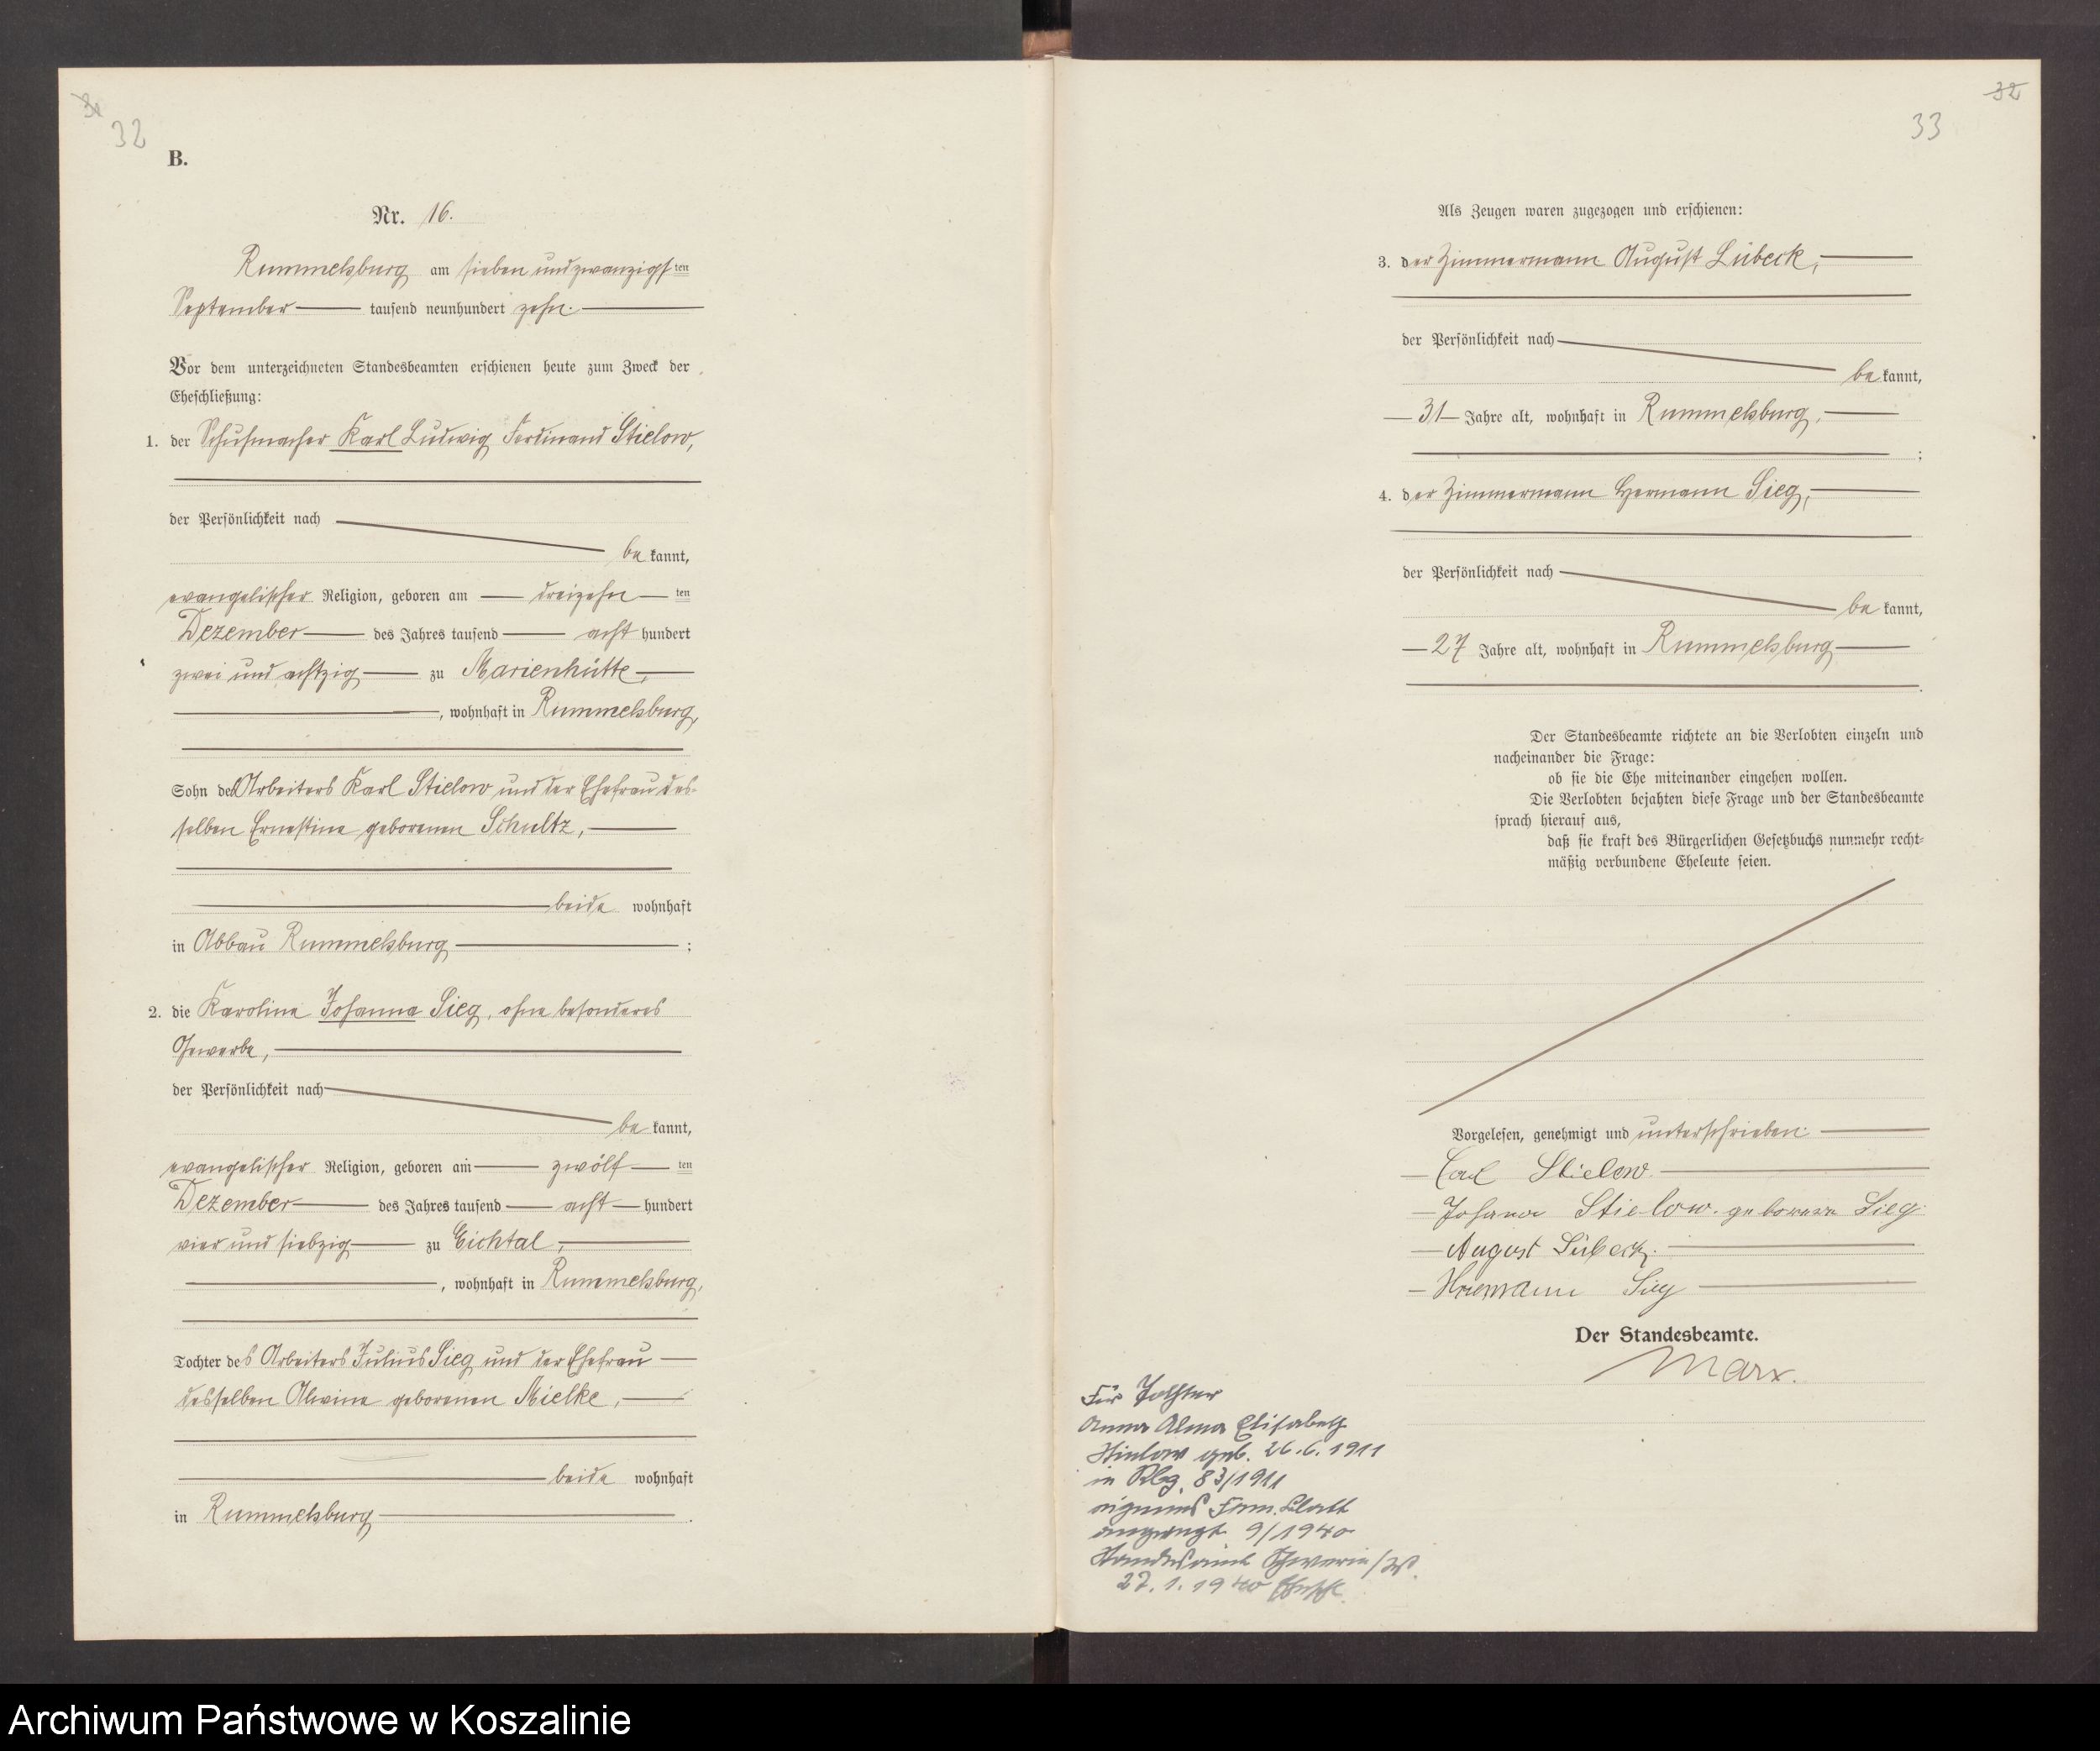 32
B.
Nr. 16.
Rummelsburg am sieben und zwanzigsten
September tausend neunhundert zehn.
Vor dem unterzeichneten Standesbeamten erschienen heute zum Zweck der
Eheschließung:
1. der Schuhmacher Karl Ludwig Ferdinand Stielow,
der Persönlichkeit nach
be kannt,
evangelischer Religion, geboren am dreizehn ten
Dezember des Jahres tausend acht hundert
zwei und achtzig zu Marienhütte,
, wohnhaft in Rummelsburg,
Sohn des Arbeiters Karl Stielow und der Ehefrau des-
selben Ernestine geborenen Schultz,
beide wohnhaft
in Abbau Rummelsburg ;
2. die Karoline Johanna Sieg, ohne besonderes
Gewerbe,
der Persönlichkeit nach
be kannt,
evangelischer Religion, geboren am zwölf ten
Dezember des Jahres tausend acht hundert
vier und siebzig zu Eichtal,
, wohnhaft in Rummelsburg,
Tochter des Arbeiters Julius Sieg und der Ehefrau
desselben Alwine geborenen Mielke,
beide wohnhaft
in Rummelsburg .
32
33
Als Zeugen waren zugezogen und erschienen:
3. der Zimmermann August Lübeck,
der Persönlichkeit nach
be kannt,
31 Jahre alt, wohnhaft in Rummelsburg,
;
4. der Zimmermann Hermann Sieg,
der Persönlichkeit nach
be kannt,
27 Jahre alt, wohnhaft in Rummelsburg
.
Der Standesbeamte richtete an die Verlobten einzeln und
nacheinander die Frage:
ob sie die Ehe miteinander eingehen wollen.
Die Verlobten bejahten diese Frage und der Standesbeamte
sprach hierauf aus,
daß sie kraft des Bürgerlichen Gesetzbuchs nunmehr recht-
mäßig verbundene Eheleute seien.
Vorgelesen, genehmigt und unterschrieben:
Carl Stielow.
Johana Stielow. geborene Sieg.
August Lübeck.
Hriemann Sieg
Der Standesbeamte.
Marx.
Für Tochter
Anna Alma Elisabeth
Stielow geb. 26.6.1911
in Rbg. 83/1911
eigenes Fam. Blatt
angelegt 9/1940
Standesamt Schwerin/W.
27.1.1940
Archiwum Państwowe w Koszalinie